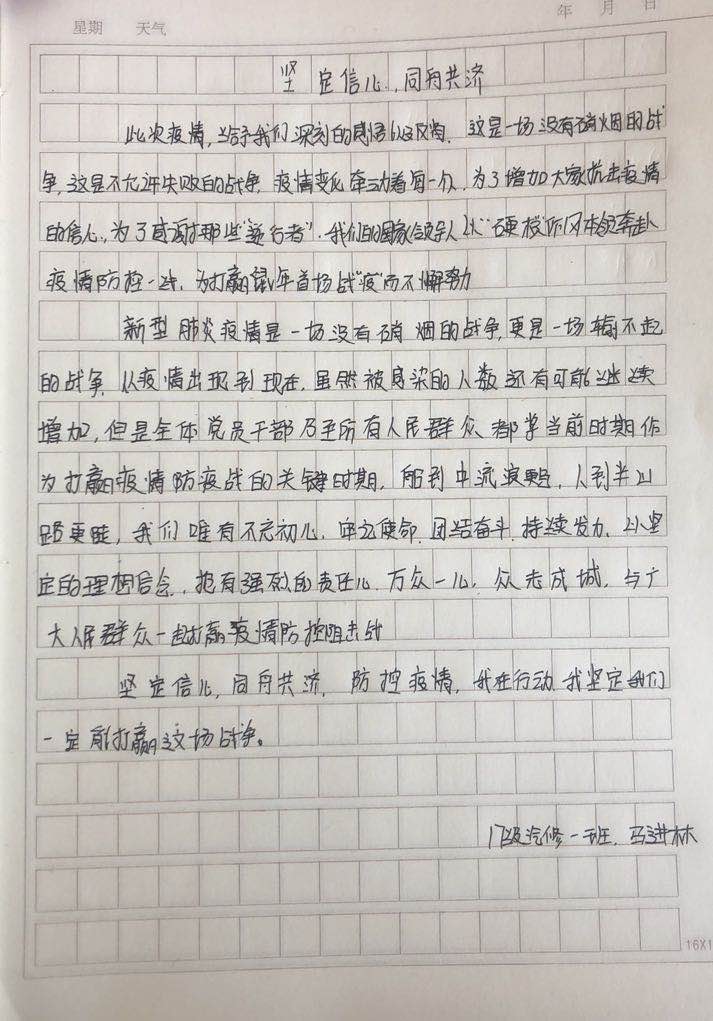 年 月 日
星期 天气
坚定信心,同舟共济
此次疫情,给予我们深刻的感悟以及反省.这是一场没有硝烟的战
争,这是不允许失败的战争.疫情变化牵动着每一个,为了增加大家抗击疫情
的信心,为了感谢那些"逆行者".我们的国家领导人以"硬核"作风本领奔赴
疫情防控一线,为打赢鼠年首场战"疫"而不懈努力
新型肺炎疫情是一场没有硝烟的战争,更是一场输不起
的战争.从疫情出现到现在,虽然被感染的人数还有可能继续
增加,但是全体党员干部乃至所有人民群众都学当前时期作
为打赢疫情防疫战的关键时期.船到中流浪更,人到半山
路更陡,我们唯有不忘初心,牢记使命.团结奋斗.持续发力.以坚
定的理想信念,抱有强烈的责任心.万众一心,众志成城,与广
大人民群众一起打赢疫情防控阻击战
坚定信心,同舟共济,防控疫情,我在行动.我坚定我们
一定能打赢这场战争。
级汽修一班.马进林
16X1